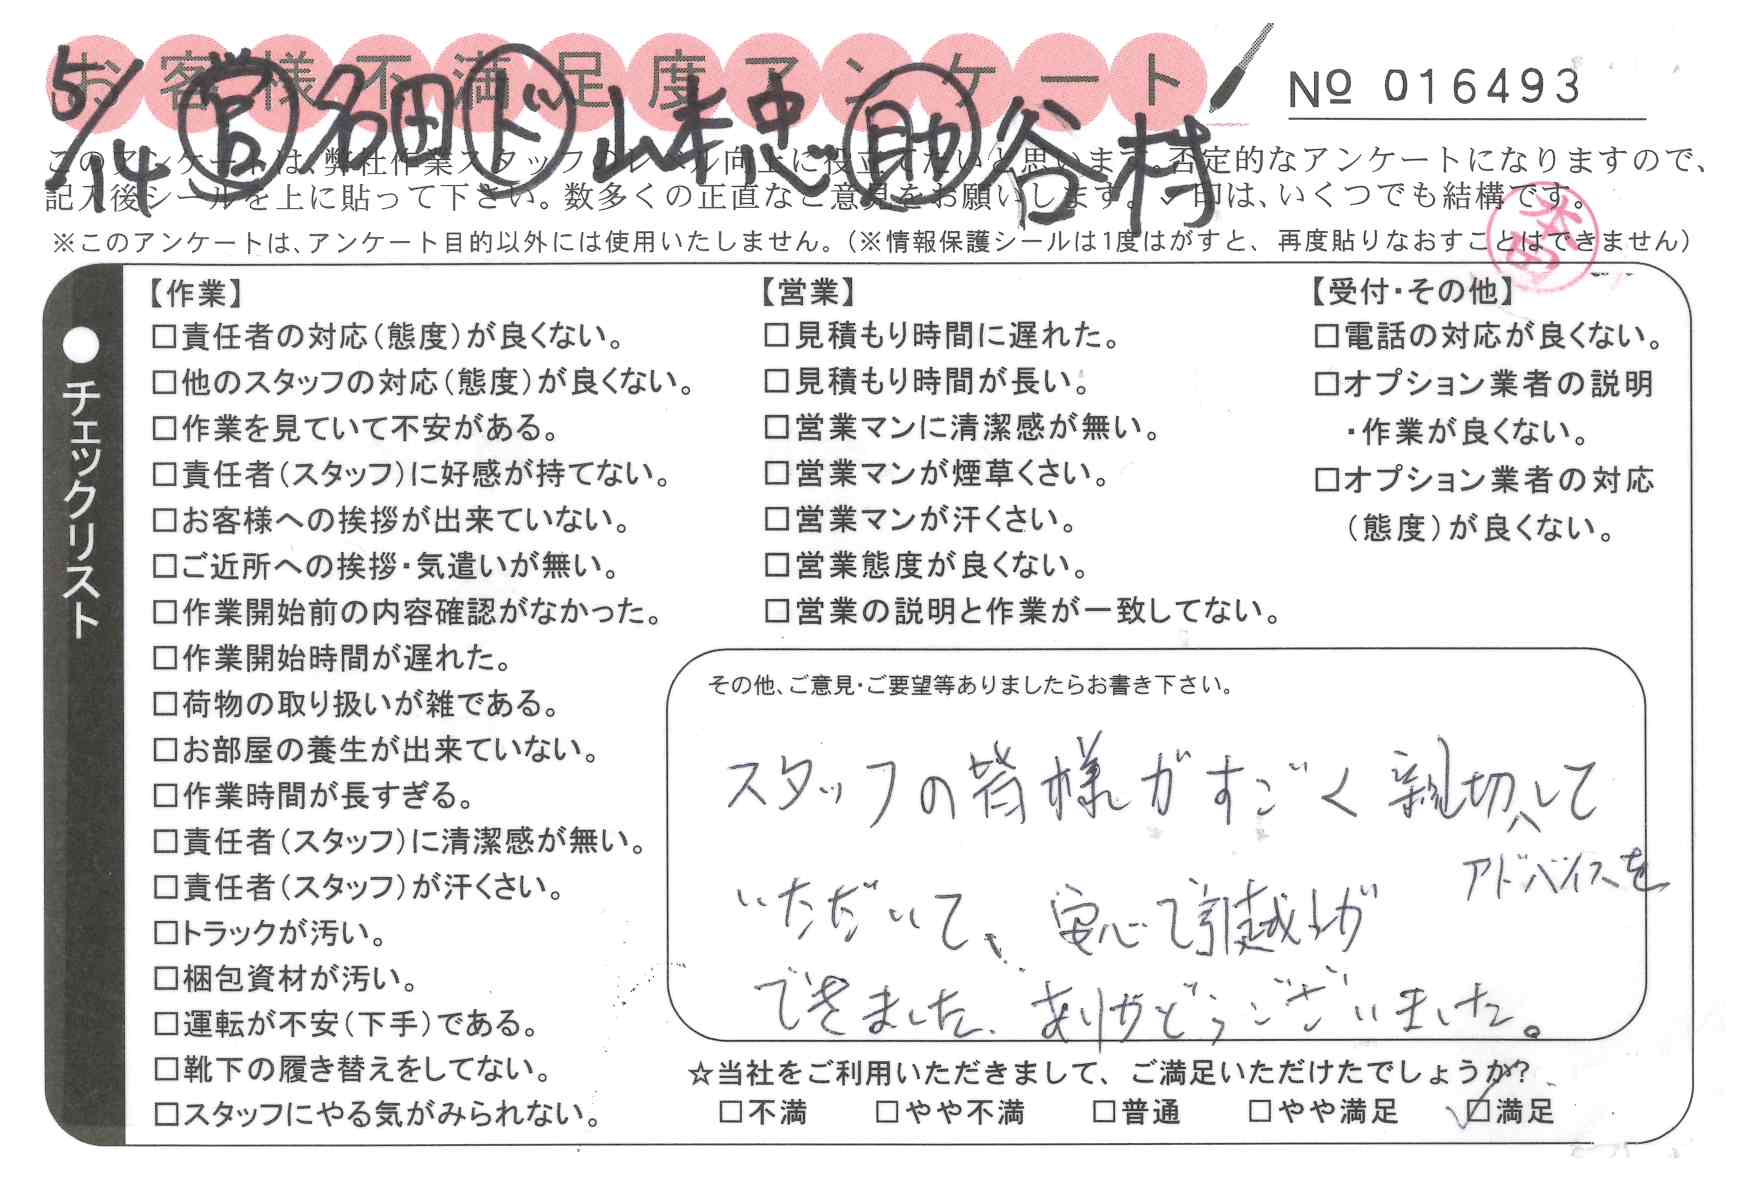 お客様不満足度アンケート
№ 016493
5/14 営 名田 ド 山本忠 助 谷村
このアンケートは、弊社作業スタッフのレベル向上に役立てたいと思います。否定的なアンケートになりますので、
記入後シールを上に貼って下さい。数多くの正直なご意見をお願いします。✓印は、いくつでも結構です。
※このアンケートは、アンケート目的以外には使用いたしません。（※情報保護シールは1度はがすと、再度貼りなおすことはできません）
●チェックリスト
【作業】
□責任者の対応（態度）が良くない。
□他のスタッフの対応（態度）が良くない。
□作業を見ていて不安がある。
□責任者（スタッフ）に好感が持てない。
□お客様への挨拶が出来ていない。
□ご近所への挨拶・気遣いが無い。
□作業開始前の内容確認がなかった。
□作業開始時間が遅れた。
□荷物の取り扱いが雑である。
□お部屋の養生が出来ていない。
□作業時間が長すぎる。
□責任者（スタッフ）に清潔感が無い。
□責任者（スタッフ）が汗くさい。
□トラックが汚い。
□梱包資材が汚い。
□運転が不安（下手）である。
□靴下の履き替えをしてない。
□スタッフにやる気がみられない。
【営業】
□見積もり時間に遅れた。
□見積もり時間が長い。
□営業マンに清潔感が無い。
□営業マンが煙草くさい。
□営業マンが汗くさい。
□営業態度が良くない。
□営業の説明と作業が一致してない。
【受付・その他】
□電話の対応が良くない。
□オプション業者の説明
・作業が良くない。
□オプション業者の対応
（態度）が良くない。
その他、ご意見・ご要望等ありましたらお書き下さい。
スタッフの皆様がすごく親切して
アドバイスを
いただいて、安心で引越しが
できました。ありがとうございました。
☆当社をご利用いただきまして、ご満足いただけたでしょうか?
□不満 □やや不満 □普通 □やや満足 □満足